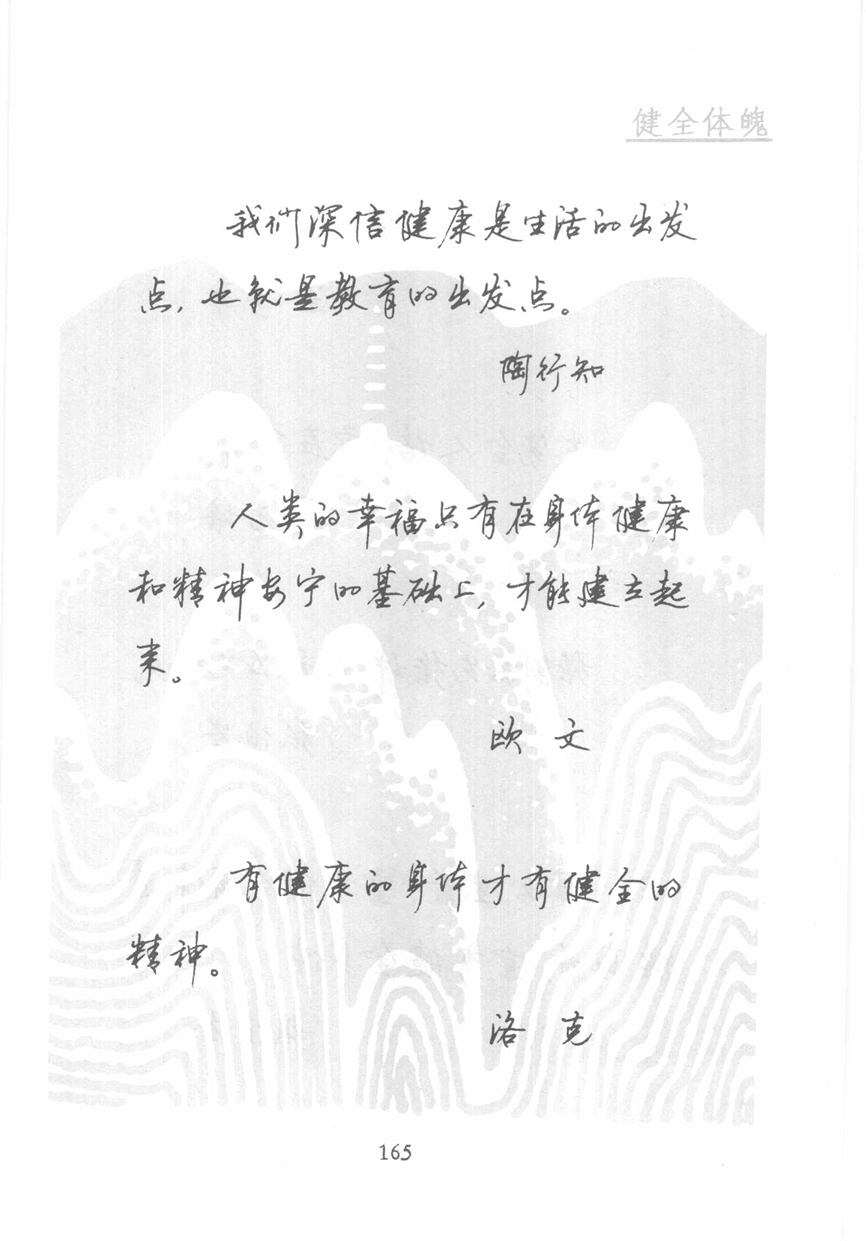 健全体魄
我们深信健康是生活的出发
点，也就是教育的出发点。
陶行知
人类的幸福只有在身体健康
和精神安宁的基础上，才能建立起
来。
欧 文
有健康的身体才有健全的
精神。
洛 克
165